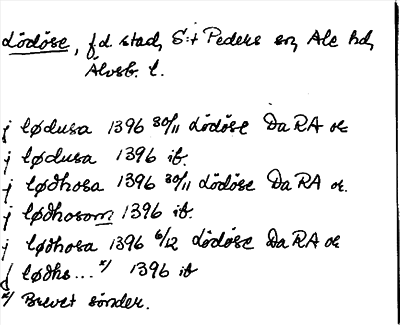 Lödöse, f.d. stad, S:t Peders sn, Ale hd,
Älvsb. l.
j lødusa 1396 30/11 Lödöse Da RA or.
j lødusa 1396 ib.
j lødhosa 1396 30/11 Lödöse Da RA or.
j lødhosom 1396 ib.
j lødhosa 1396 6/12 Lödöse Da RA or
j lødhs...x/ 1396 ib
x/ Brevet sönder.